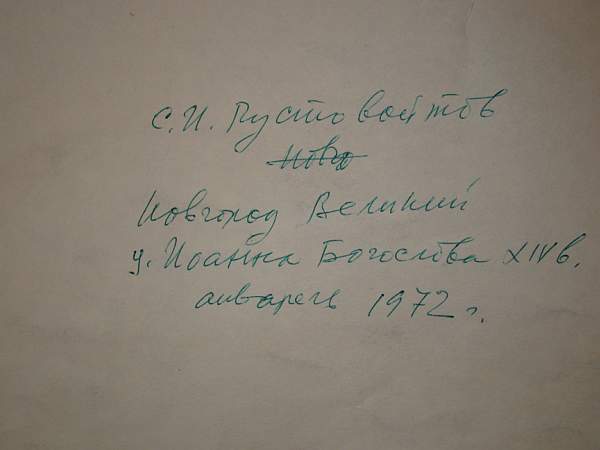 С. И. Пустовойтов
Новго
Новгород Великий
ц. Иоанна Богослова XIV в.
январь 1972 г.